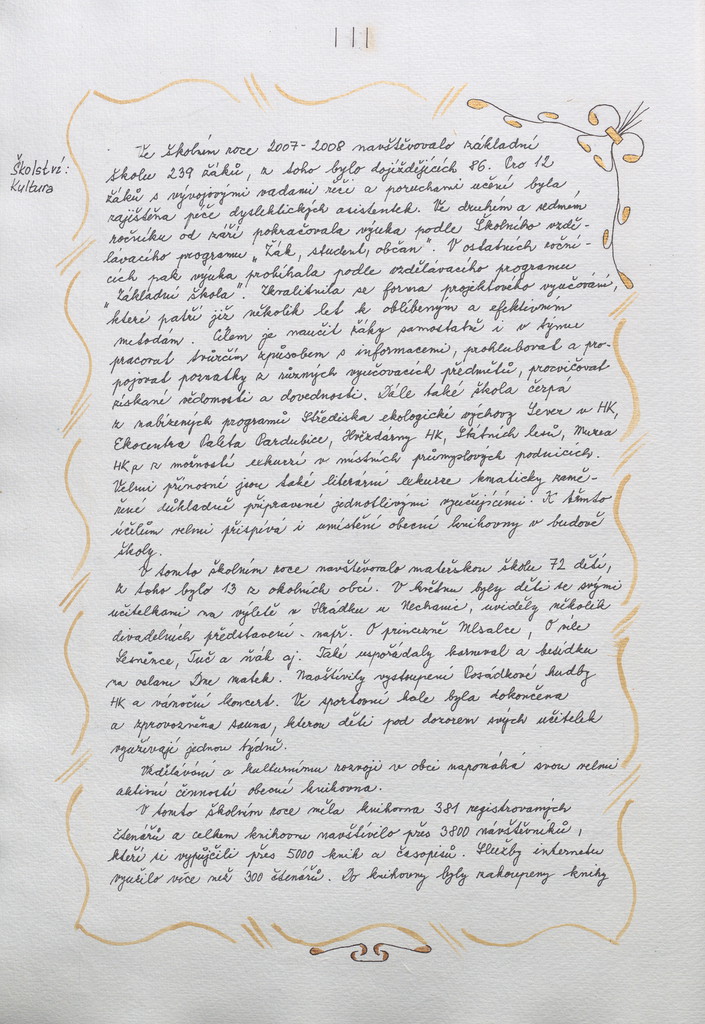 111
Školství:
Kultura
Ve školním roce 2007-2008 navštěvovalo základní
školu 239 žáků, z toho bylo dojíždějících 86. Pro 12
žáků s vývojovými vadami řeči a poruchami učení byla
zajištěna péče dyslektických asistentek. Ve druhém a sedmém
ročníku od září pokračovala výuka podle Školního vzdě-
lávacího programu „Žák, student, občan". V ostatních roční-
cích pak výuka probíhala podle vzdělávacího programu
„Základní škola". Zkvalitnila se forma projektového vyučování,
které patří již několik let k oblíbeným a efektivním
metodám. Cílem je naučit žáky samostatně i v týmu
pracovat tvůrčím způsobem s informacemi, prohlubovat a pro-
pojovat poznatky z různých vyučovacích předmětů, procvičovat
získané vědomosti a dovednosti. Dále také škola čerpá
z nabízených programů Střediska ekologické výchovy Sever v HK,
Ekocentra Paleta Pardubice, Hvězdárny HK, Státních lesů, Muzea
HK a z možností exkurzí v místních průmyslových podnicích.
Velmi přínosné jsou také literární exkurze tematicky zamě-
řené důkladně připravené jednotlivými vyučujícími. K těmto
účelům velmi přispívá i umístění obecní knihovny v budově
školy.
V tomto školním roce navštěvovalo mateřskou školu 72 dětí,
z toho bylo 13 z okolních obcí. V květnu byly děti se svými
učitelkami na výletě v Hrádku u Nechanic, uviděly několik
divadelních představení - např. O princezně Mlsalce, O víle
Lesněnce, Ťuč a ňák aj. Také uspořádaly karneval a besídku
na oslavu Dne matek. Navštívily vystoupení Posádkové hudby
HK a vánoční koncert. Ve sportovní hale byla dokončena
a zprovozněna sauna, kterou děti pod dozorem svých učitelek
využívají jednou týdně.
Vzdělávání a kulturnímu rozvoji v obci napomáhá svou velmi
aktivní činností obecní knihovna.
V tomto školním roce měla knihovna 381 registrovaných
čtenářů a celkem knihovnu navštívilo přes 3800 návštěvníků,
kteří si vypůjčili přes 5000 knih a časopisů. Služby internetu
využilo více než 300 čtenářů. Do knihovny byly zakoupeny knihy